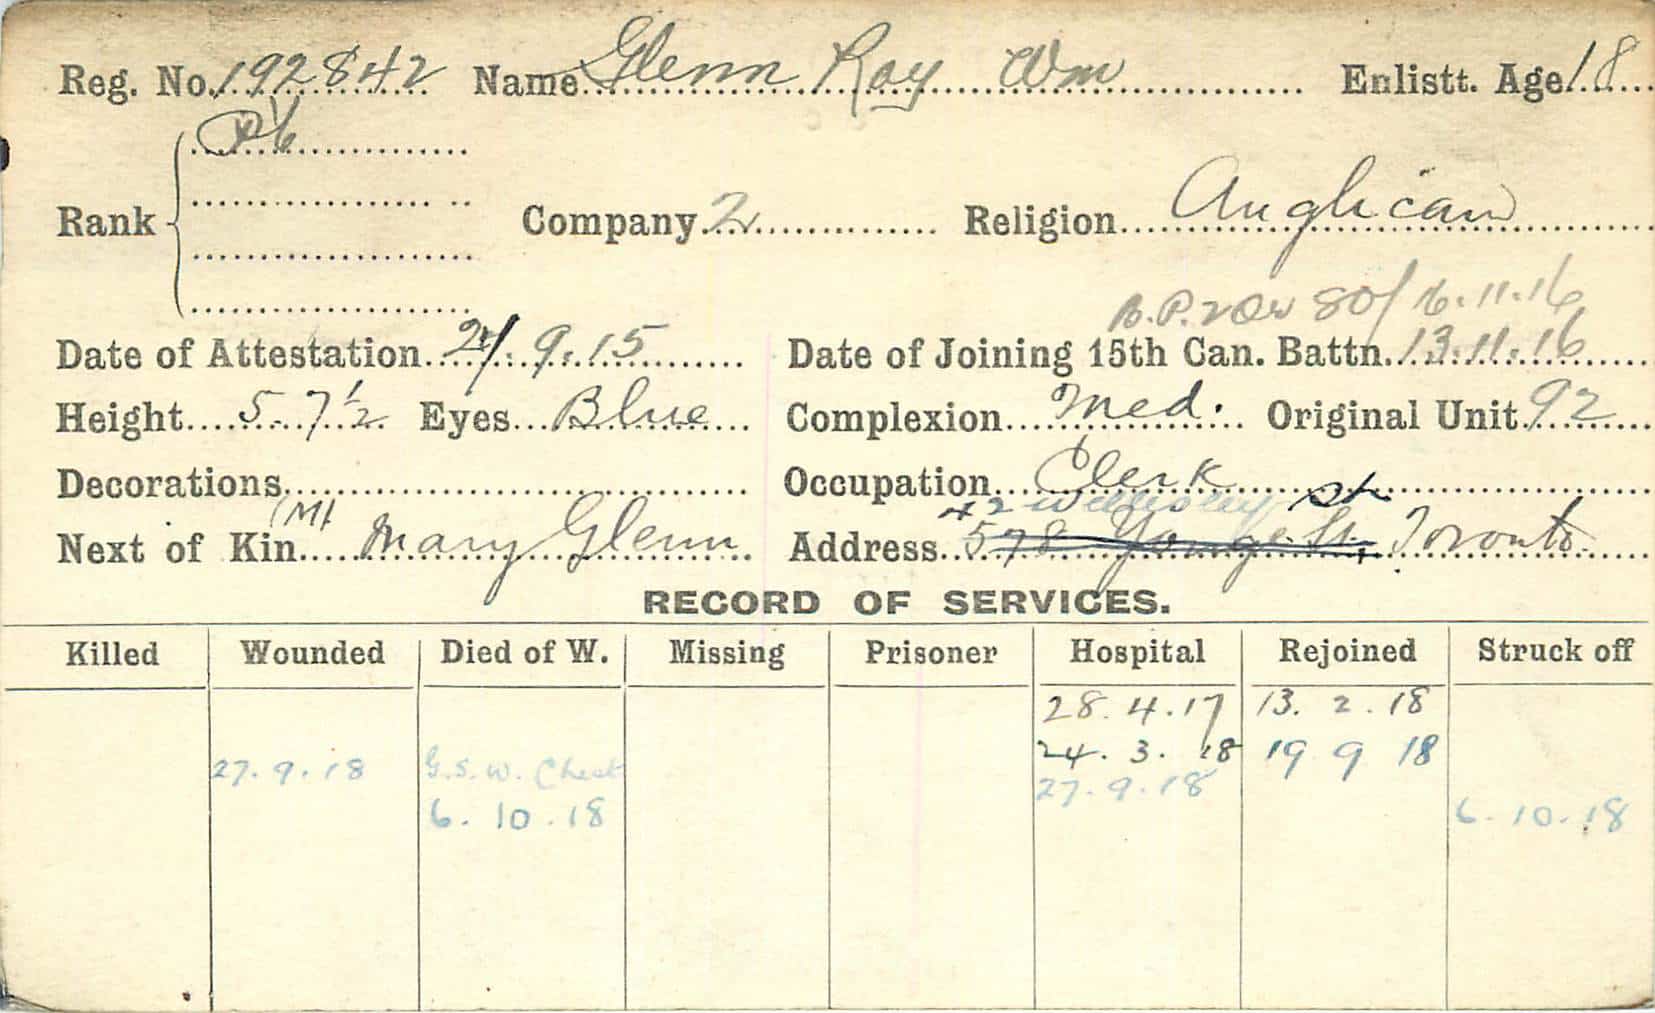 Reg. No. 192842 Name Glenn Roy Wm Enlistt. Age 18
Pte
Rank Company 2 Religion Anglican
80/16.11.16
Date of Attestation 24.9.15 Date of Joining 15th Can. Battn. 13.11.16
Height 5.7½ Eyes Blue Complexion Med. Original Unit 92
Decorations Occupation Clerk
42 Wellesley St
(M) Next of Kin Mary Glenn Address 578 Yonge St, Toronto
RECORD OF SERVICES.
Killed Wounded Died of W. Missing Prisoner Hospital Rejoined Struck off
28.4.17 13.2.18
27.9.18 G.S.W. Chest 24.3.18 19 9 18
6.10.18 27.9.18 6.10.18